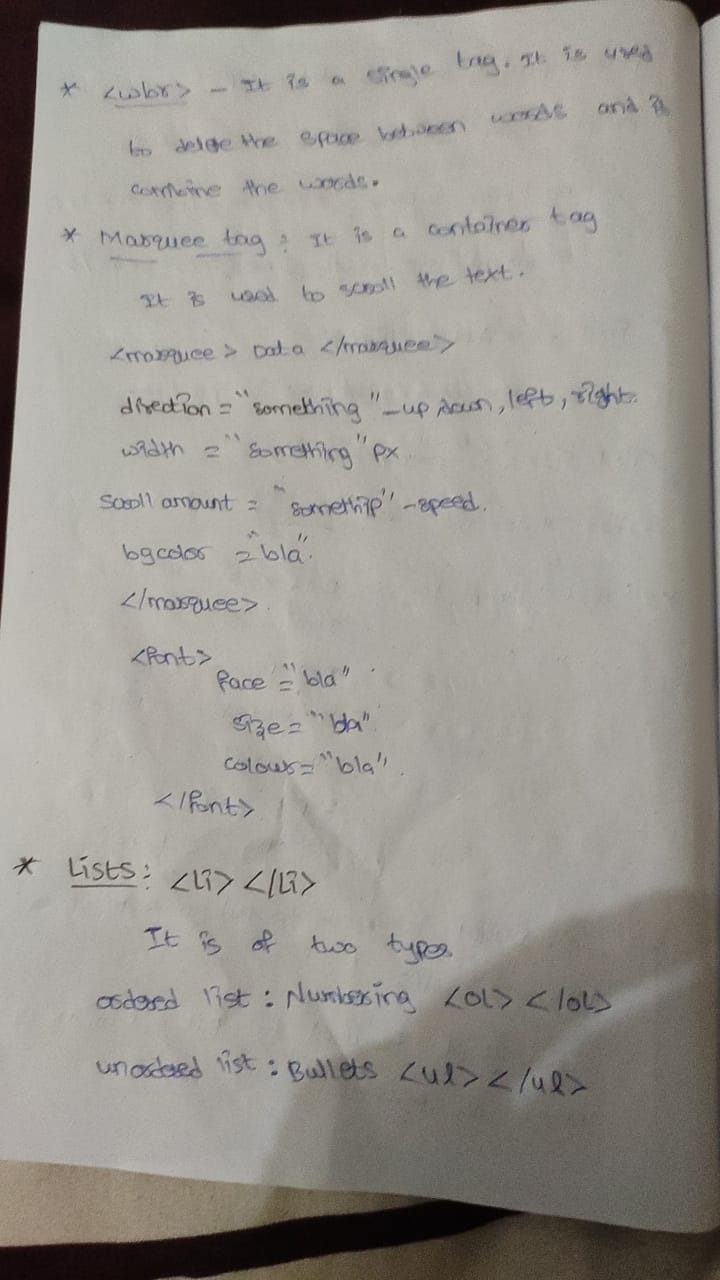 * <wbr> - It is a single tag. It is used
to delete the space between words and it
combine the words.
* Marquee tag : It is a container tag
It is used to scroll the text.
<marquee> Data </marquee>
direction = "something" - up, down, left, right.
width = "something" px
scroll amount = "somethig" - speed.
bgcolor = "bla".
</marquee>.
<font>
face = "bla"
size = "bla"
colour = "bla".
</font>
* Lists : <Li> </Li>
It is of two types
ordered list : Numbering <OL> </OL>
unordered list : Bullets <ul> </ul>